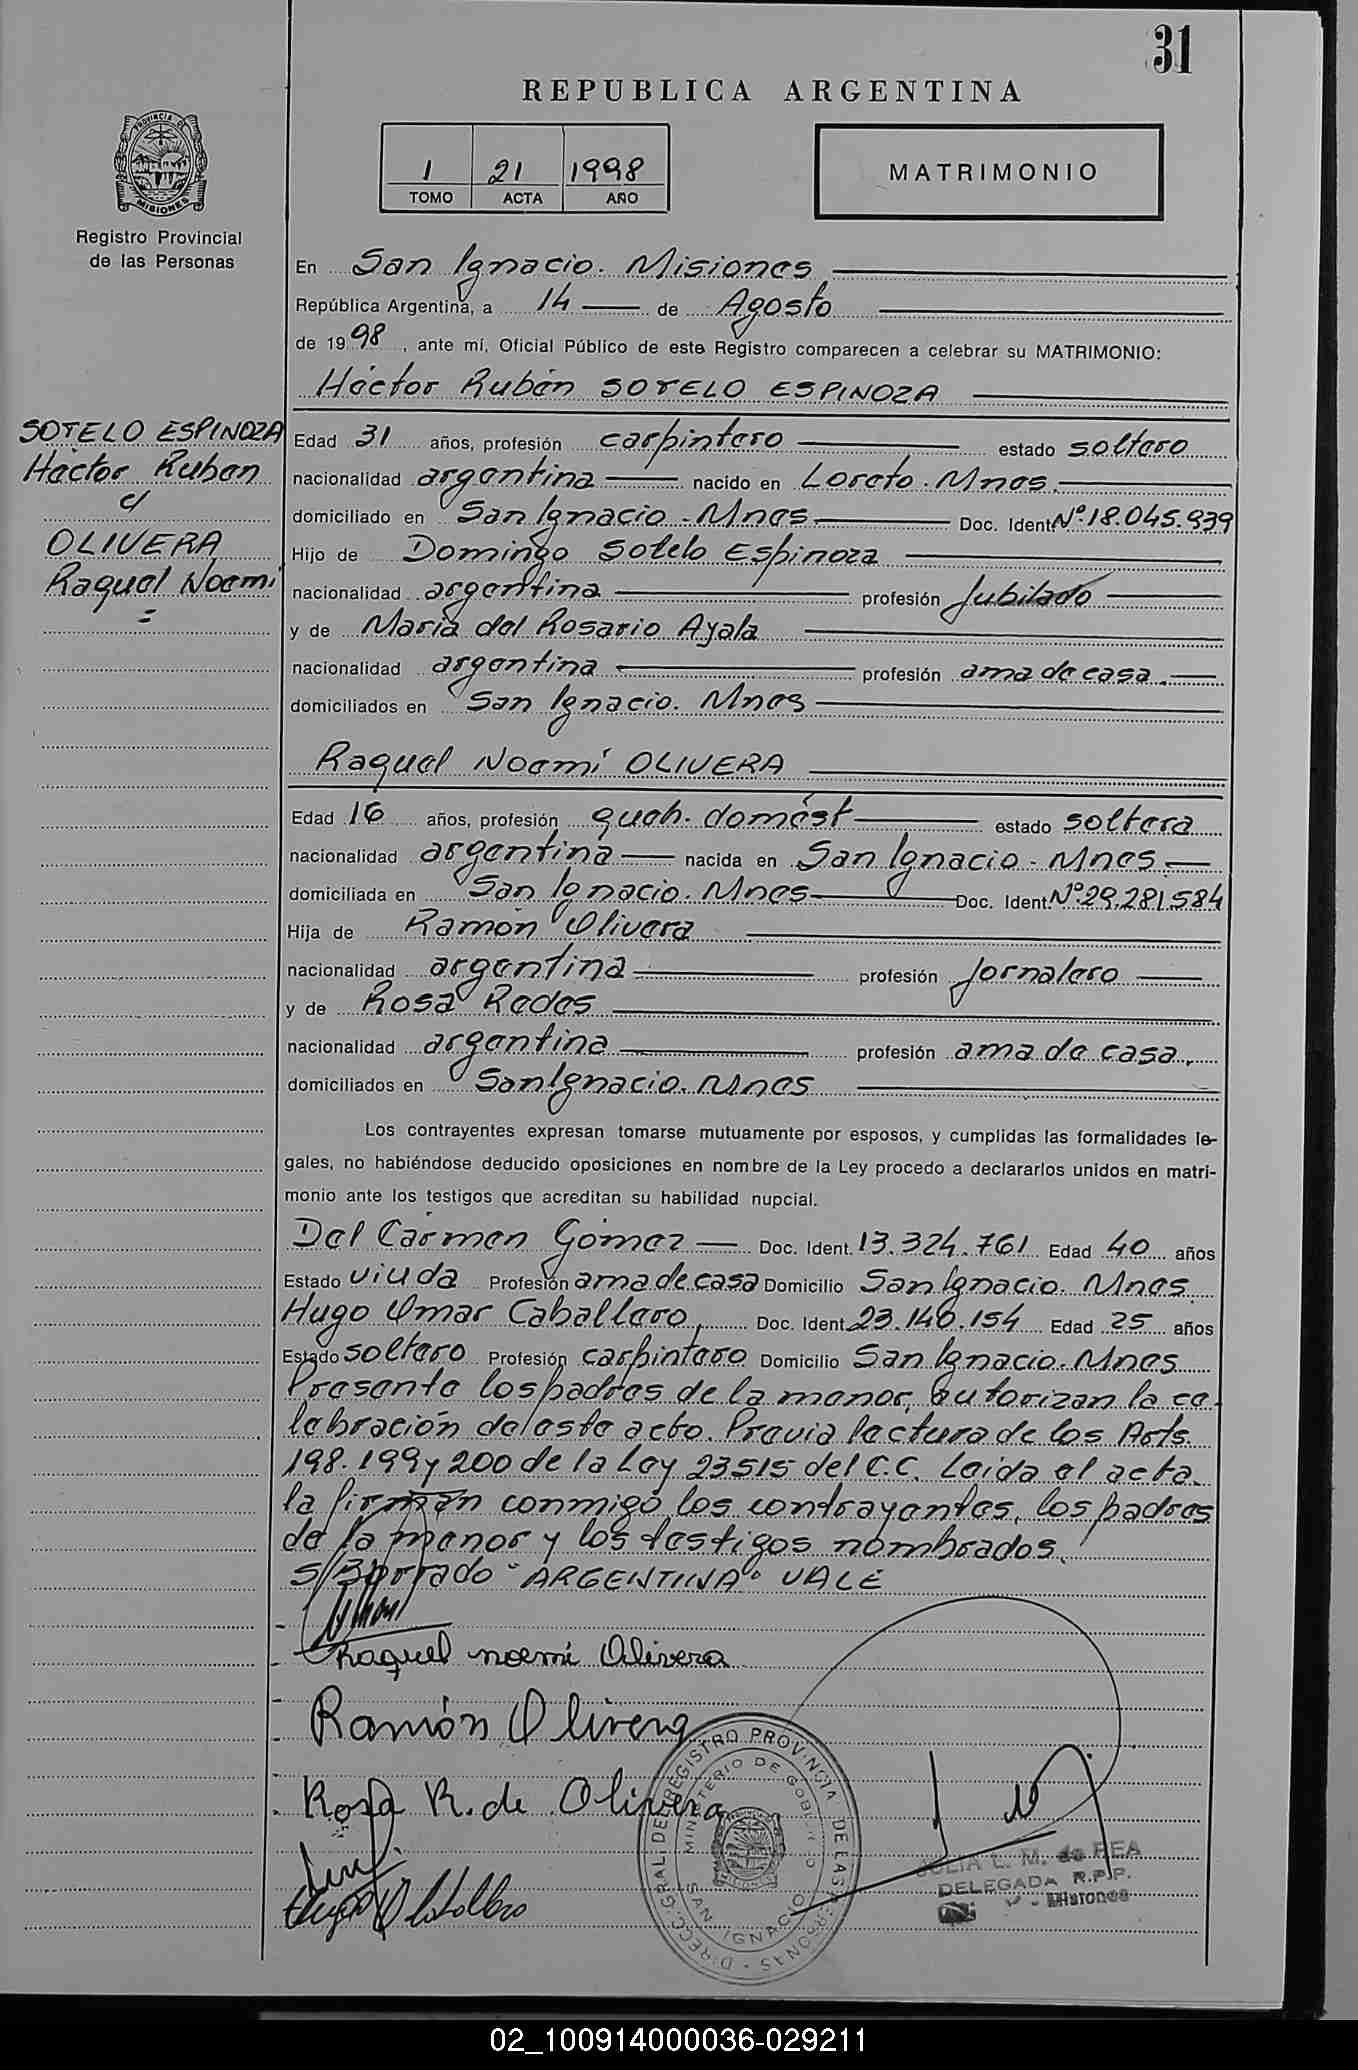 31
REPUBLICA ARGENTINA
1 21 1998
TOMO ACTA AÑO
MATRIMONIO
PROVINCIA DE MISIONES
Registro Provincial
de las Personas
En San Ignacio. Misiones
República Argentina, a 14 de Agosto
de 1998, ante mí, Oficial Público de este Registro comparecen a celebrar su MATRIMONIO:
Héctor Rubén SOTELO ESPINOZA
SOTELO ESPINOZA
Héctor Ruben
c/
OLIVERA
Raquel Noemí
=
Edad 31 años, profesión carpintero estado soltero
nacionalidad argentina nacido en Loreto. Mnes.
domiciliado en San Ignacio - Mnes Doc. Ident Nº 18.045.939
Hijo de Domingo Sotelo Espinoza
nacionalidad argentina profesión Jubilado
y de María del Rosario Ayala
nacionalidad argentina profesión ama de casa.
domiciliados en San Ignacio. Mnes
Raquel Noemí OLIVERA
Edad 16 años, profesión queh. domést estado soltera
nacionalidad argentina nacida en San Ignacio - Mnes
domiciliada en San Ignacio. Mnes Doc. Ident Nº 29.281.584
Hija de Ramón Olivera
nacionalidad argentina profesión Jornalero
y de Rosa Redes
nacionalidad argentina profesión ama de casa.
domiciliados en San Ignacio. Mnes
Los contrayentes expresan tomarse mutuamente por esposos, y cumplidas las formalidades le-
gales, no habiéndose deducido oposiciones en nombre de la Ley procedo a declararlos unidos en matri-
monio ante los testigos que acreditan su habilidad nupcial.
Del Cármen Gómez Doc. Ident. 13.324.761 Edad 40 años
Estado viuda Profesión ama de casa Domicilio San Ignacio. Mnes.
Hugo Omar Caballero, Doc. Ident. 23.140.154 Edad 25 años
Estado soltero Profesión carpintero Domicilio San Ignacio. Mnes
Presente los padres de la menor, autorizan la ce-
lebración de este acto. Previa lectura de los Arts.
198. 199 y 200 de la Ley 23515 del C.C. Leida el acta
la firman conmigo los contrayentes, los padres
de la menor y los testigos nombrados.
S/Borrado "ARGENTINA" VALE
Raquel noemi Olivera
Ramón Olivera
Rosa R. de Olivera
DIRECC. GRAL. DE REGISTRO PROVINCIA DE LAS PERSONAS
MINISTERIO DE GOBIERNO
SAN IGNACIO
JULIA L. M. de REA
DELEGADA R.P.P.
Misiones
02_100914000036-029211